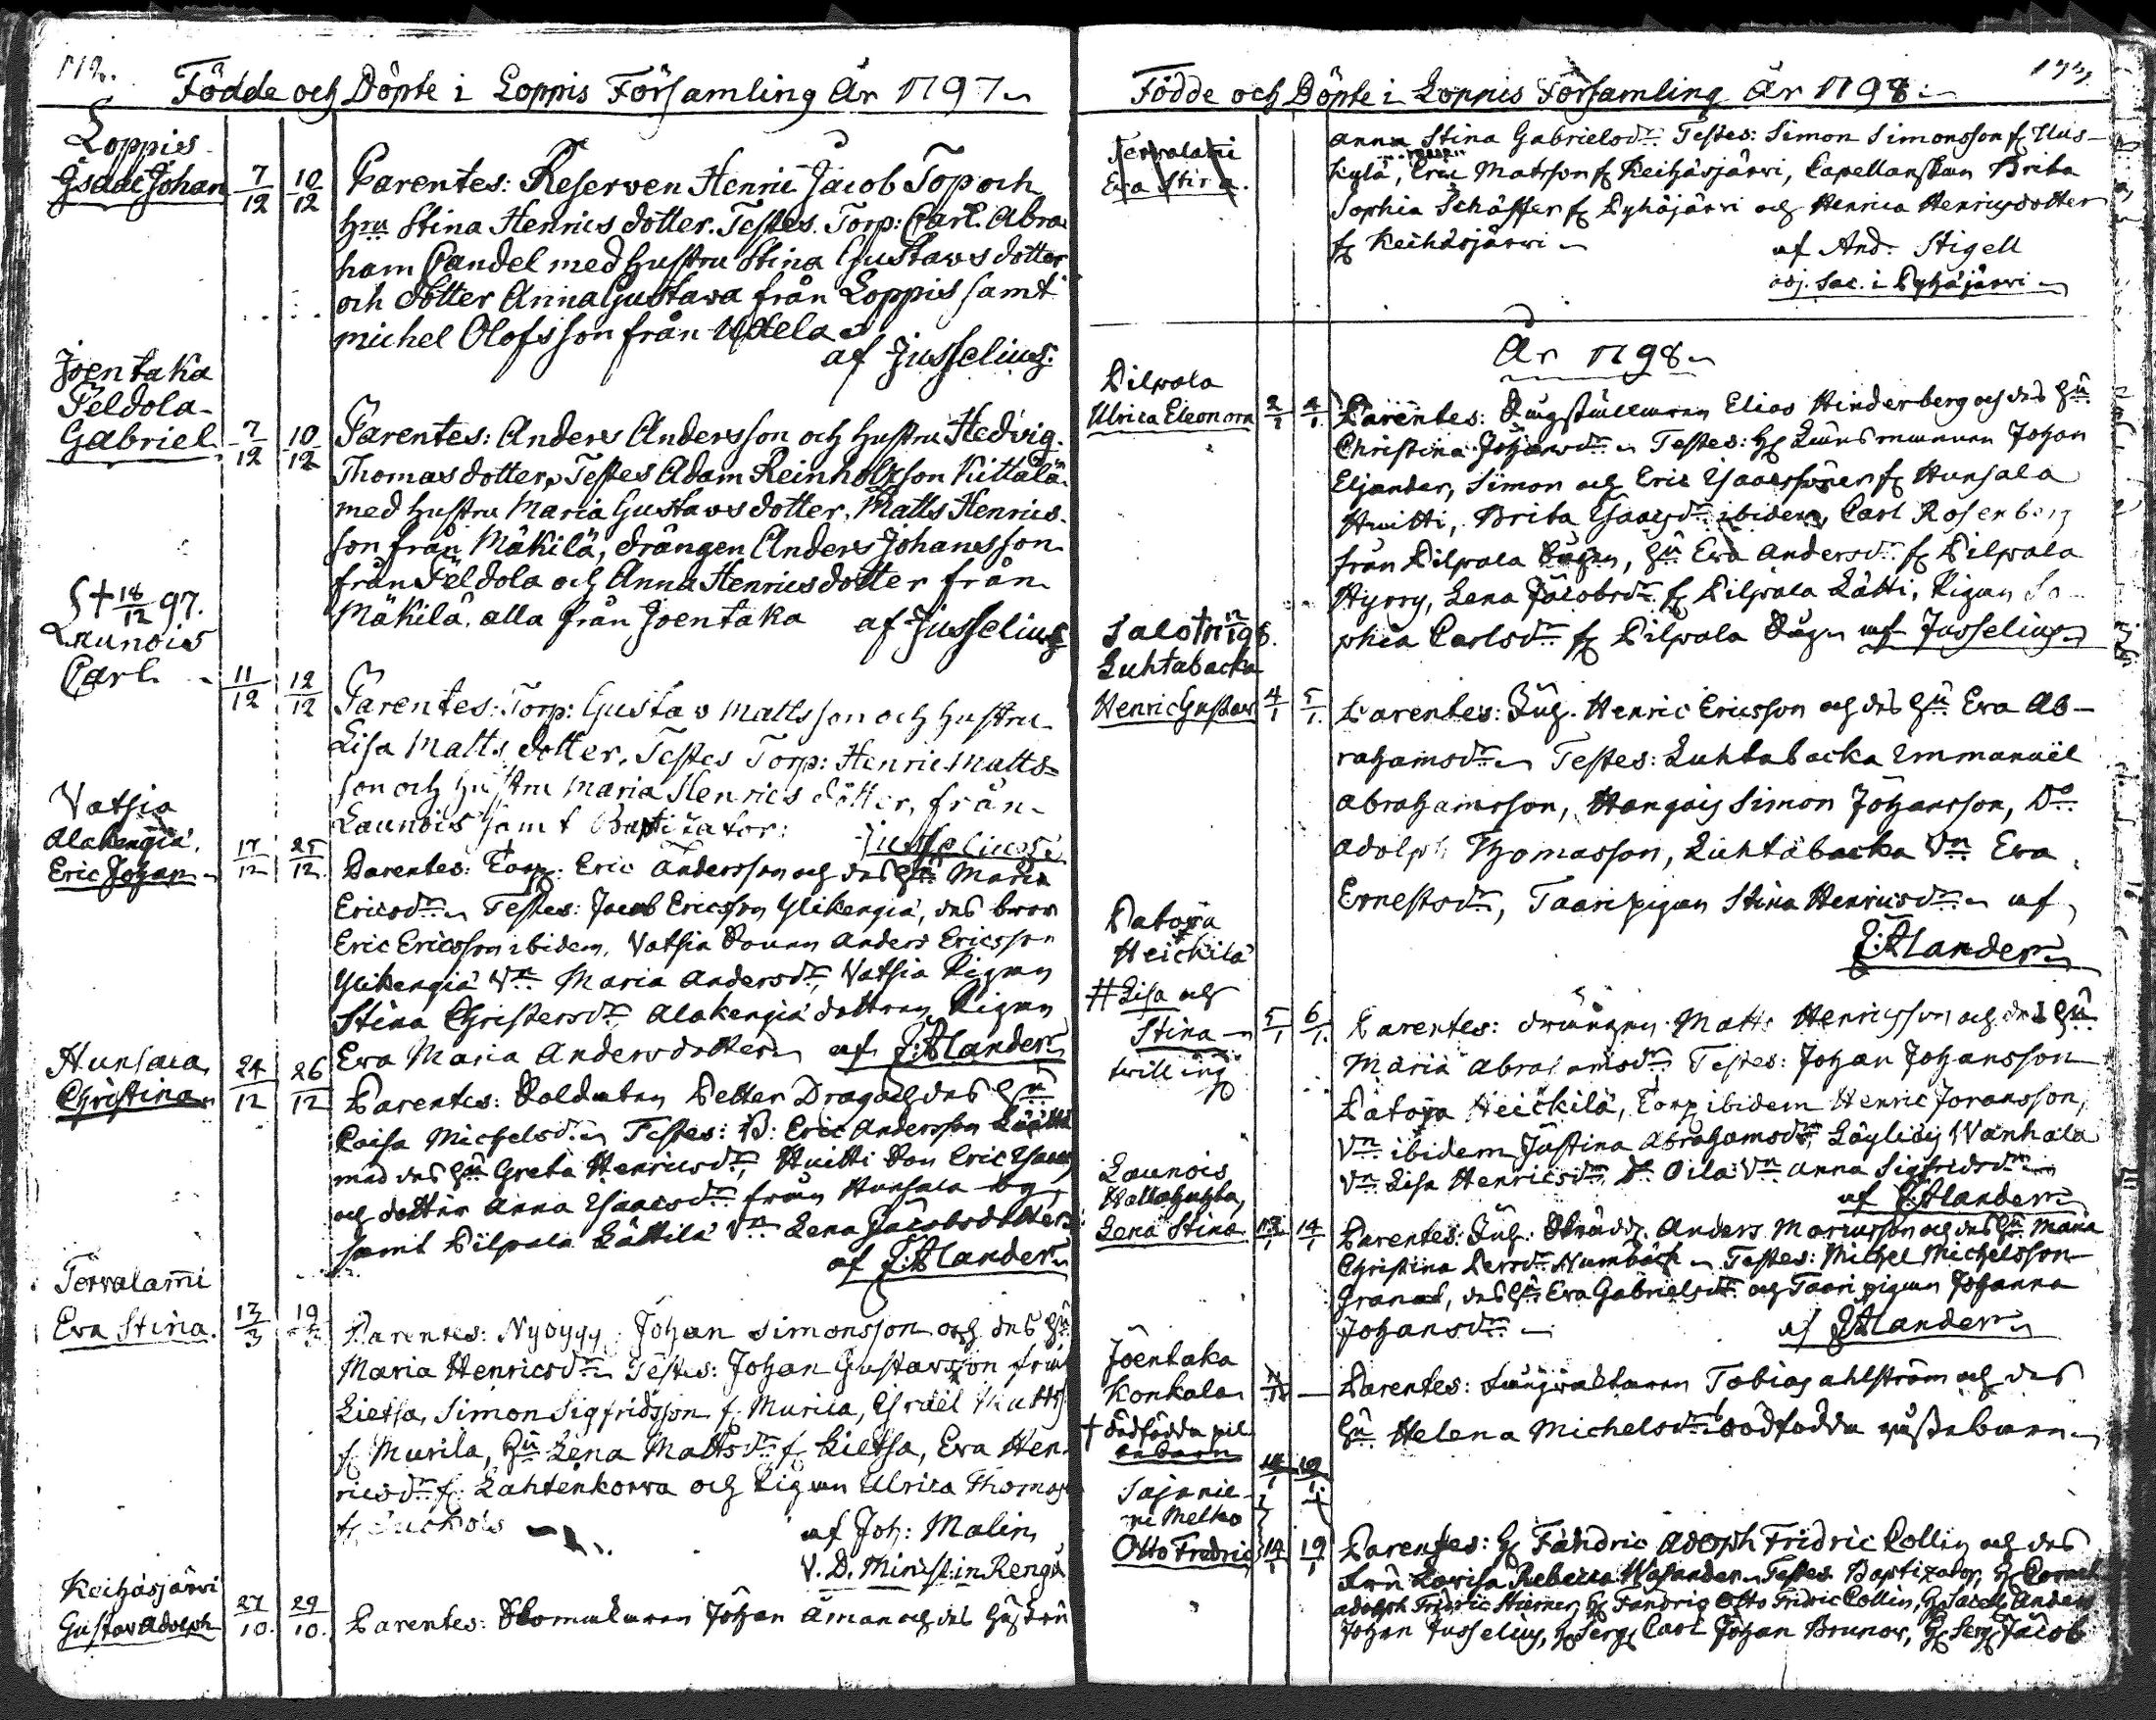 112.
Födde och Döpte i Loppis Församling År 1797
Loppis
Isaac Johan 7/12 10/12
Parentes: Reserven Henric Jacob Top och
hru Stina Henrics dotter. Testes. Torp: Carl Abra
ham Pandel med hustru Stina Gustavs dotter
och dotter Anna Gustava från Loppis samt
michel Olofsson från Uklela
af Jusselius
Joentaka
Peldola
Gabriel 7/12 10/12
Parentes: Anders Andersson och hustru Hedvig
Thomas dotter, Testes Adam Reinholdsson Kittälä
med hustru Maria Gustavs dotter. Matts Henrics
son från Mäkilä, drängen Anders Johansson
från Peldola och Anna Henricsdotter från
Mäkilä. alla från Joentaka af Jusselius
† 18/12 97.
Launois
Carl 11/12 12/12
Parentes: Torp: Gustav Mattsson och hustru
Lisa Matts dotter. Testes Torp: Henric Matts=
son och hustru Maria Henrics dotter, från
Launois samt Baptizator:
Jusselius
Vatsia
Alakengiä
Eric Johan 17/12 25/12
Parentes: Torp: Eric Andersson och des hu Maria
Ericsdr Testes: Jacob Ericsson Ylikengiä, des bror
Eric Ericsson ibidem, Vatsia Sonen Anders Ericsson
Ylikengiä Vn Maria Andersdr, Vatsia Pigan
Stina Christersdr Alakengiä dottren Pigan
Eva Maria Andersdotter af E: Alander
Hunsala
Christina 24/12 26/12
Parentes: Soldaten Petter Drag och des hu
Caisa Michelsdr Testes: B: Eric Andersson Läätti
med des hu Greta Henricsdr, Huitti Son Eric Isaacs
och dotter Anna Isaacsdr från Hunsala by
samt Pilpala Lättilä Vn Lena Jacobsdotter
af E: Alander
Tervalami
Eva Stina. 13/3 19/3
Parentes: Nybygg: Johan Simonsson och des hu
Maria Henricsdr Testes: Johan Gustavsson från
Lietsa, Simon Sigfridsson f: Murila, Israël Matts
f: Murila, hu Lena Mattsdr f: Lietsa, Eva Hen
ricsdr f: Lahtenkorva och Pigan Ulrica Thomas
af Joh: Malin
V. D. Minist: in Rengo
Keihäsjärvi
Gustav Adolph 27/10 29/10.
Parentes: Skomakaren Johan Åman och des hustru
Födde och Döpte i Loppis Församling År 1798
Tervalami
Eva Stina.
Anna Stina Gabrielsdr Testes: Simon Simonsson f: Uus-
kylä, Eric Matsson f: Keihäsjärvi, Capellanskan Brita
Sophia Schäffer f: Pyhäjärvi och Henrica Henricsdotter
f: Keihäsjärvi
af And: Stigell
adj. Sac. i Pyhäjärvi
År 1798
Pilpala
Ulrica Eleonora 2/1 4/1
Parentes: Elias Hinderberg och des hu
Christina Johansdr Testes: H: Länsmannen Johan
Eljander, Simon och Eric Isaacssöner f: Hunsala
Huitti, Brita Isaacsdr ibidem, Carl Rosenberg
från Pilpala Sågen, hu Eva Andersdr f: Pilpala
Hyrry, Lena Jacobsdr f: Pilpala Lätti, Pigan So
phia Carlsdr f: Pilpala Såg af Jusselius
Salo
Luhtabacka
Henric Gustav 4/1 5/1
Parentes: Inh: Henric Ericsson och des hu Eva Ab-
rahamsdr Testes: Luhtabacka Emmanuël
Abrahamsson, Hangais Simon Johansson, Do
Adolph Thomasson, Luhtabacka Vn Eva
Ernestsdr, Taari pigan Stina Henricsdr af
E: Alander
Patoja
Heickilä
# Lisa och
Stina 5/1 6/1
twilling
Parentes: drängen Matts Henricsson och des hu
Maria Abrahamsdr Testes: Johan Johansson
Patoja Heickilä, Torp ibidem Henric Joransson,
Vn ibidem Justina Abrahamsdr, Läyliäis Wanhala
Vn Lisa Henricsdr, Do Oila Vn Anna Sigfridsdr
af E: Alander
Launois
Lena Stina 13/1 14/1
Parentes: Inh: Skrädd: Anders Marcusson och des hu Maria
Christina Persdr Numbäck Testes: Michel Michelsson
Granat, des hu Eva Gabrielsdr och Taari pigan Johanna
Johansdr af E: Alander
Joentaka
Konkala
† dödfödda pil
tebarn
Parentes: Tobias Ahlström och des
hu Helena Michelsdr dödfödda gossebarn
Sajanie
mi Melko
Otto Fredric 14/1 19/1
Parentes: H: Fändric Adolph Fridric Collin och des
Fru Lovisa Rebecca Testes Baptizator, H: Cornet
Adolph Fridric Stierner, H: Fändric Otto Fridric Collin, H: Sacell: Anders
Johan Jusselius, H: Serg: Carl Johan Brunov, H: Serg: Jacob